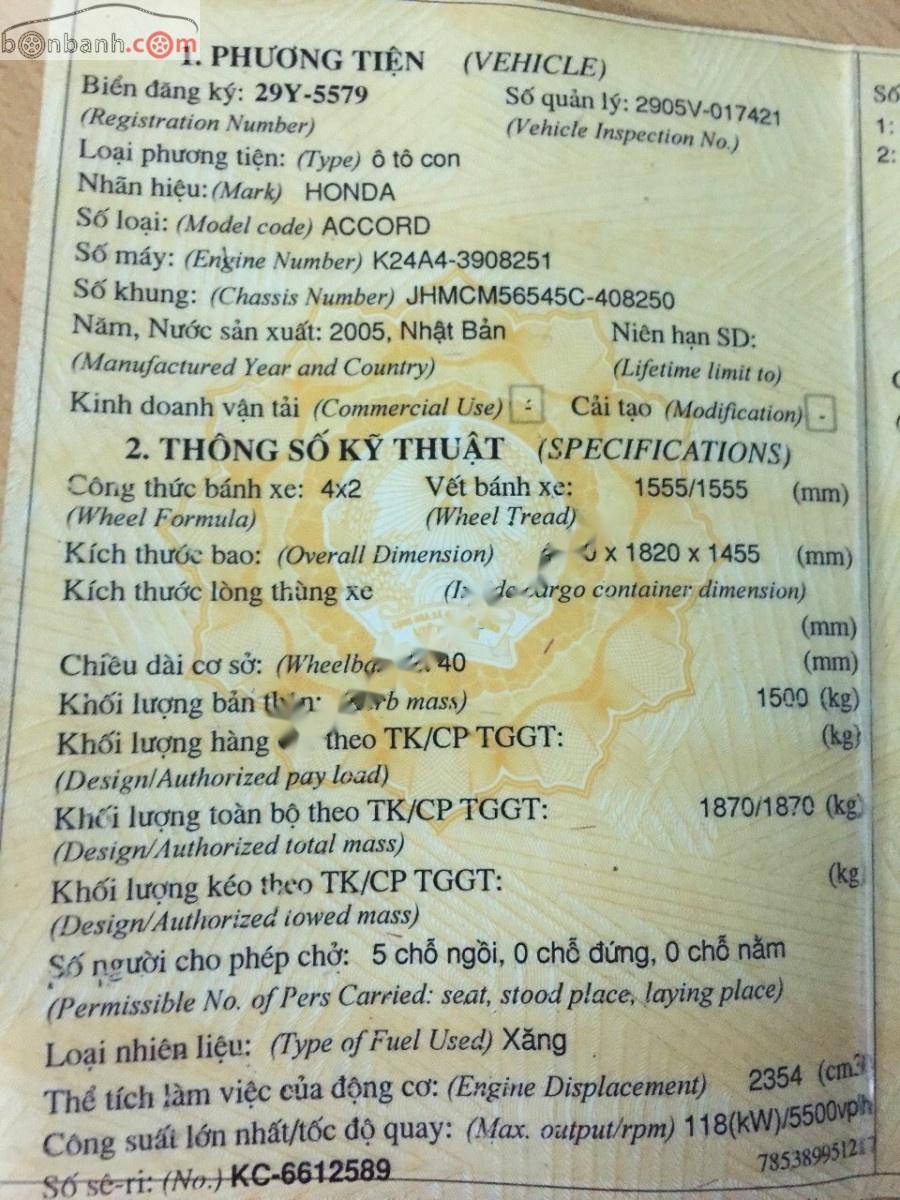 bonbanh.com
1. PHƯƠNG TIỆN (VEHICLE)
Biển đăng ký: 29Y-5579 Số quản lý: 2905V-017421
(Registration Number) (Vehicle Inspection No.)
Loại phương tiện: (Type) ô tô con
Nhãn hiệu: (Mark) HONDA
Số loại: (Model code) ACCORD
Số máy: (Engine Number) K24A4-3908251
Số khung: (Chassis Number) JHMCM56545C-408250
Năm, Nước sản xuất: 2005, Nhật Bản Niên hạn SD:
(Manufactured Year and Country) (Lifetime limit to)
Kinh doanh vận tải (Commercial Use) - Cải tạo (Modification) -
2. THÔNG SỐ KỸ THUẬT (SPECIFICATIONS)
Công thức bánh xe: 4x2 Vết bánh xe: 1555/1555 (mm)
(Wheel Formula) (Wheel Tread)
Kích thước bao: (Overall Dimension) x 1820 x 1455 (mm)
Kích thước lòng thùng xe cargo container dimension)
(mm)
Chiều dài cơ sở: 40 (mm)
Khối lượng bản mass) 1500 (kg)
Khối lượng hàng theo TK/CP TGGT: (kg)
(Design/Authorized pay load)
Khối lượng toàn bộ theo TK/CP TGGT: 1870/1870 (kg)
(Design/Authorized total mass)
Khối lượng kéo theo TK/CP TGGT: (kg
(Design/Authorized towed mass)
Số người cho phép chở: 5 chỗ ngồi, 0 chỗ đứng, 0 chỗ nằm
(Permissible No. of Pers Carried: seat, stood place, laying place)
Loại nhiên liệu: (Type of Fuel Used) Xăng
Thể tích làm việc của động cơ: (Engine Displacement) 2354 (cm3
Công suất lớn nhất/tốc độ quay: (Max. output/rpm) 118(kW)/5500vph
Số sê-ri: (No.) KC-6612589
Số
1:
2: